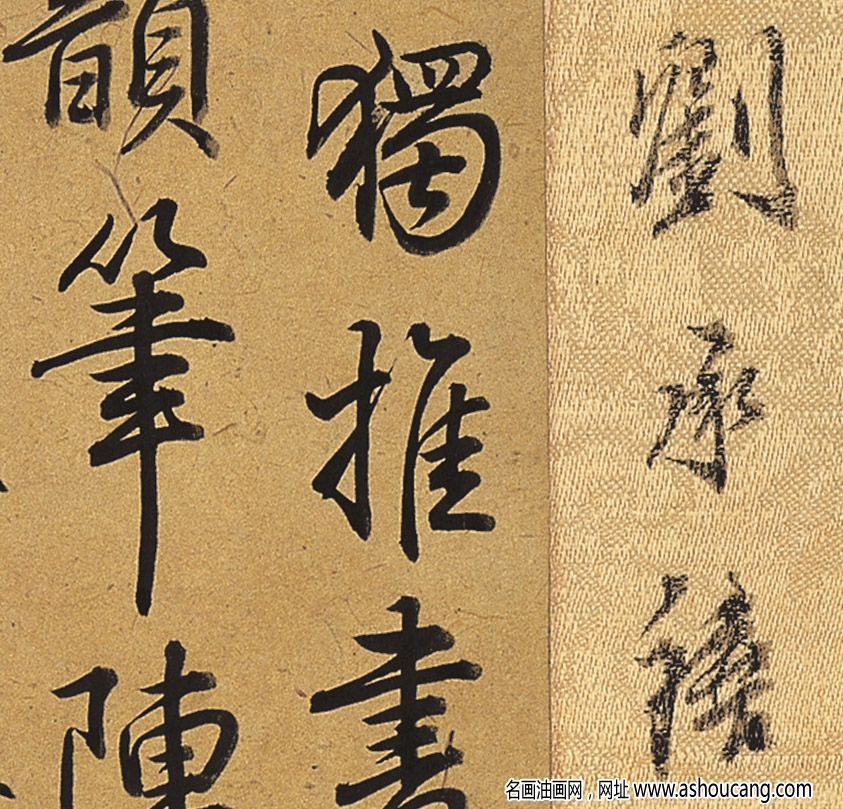 劉承禧
獨推書
韻筆陳
名画油画网，网址 www.ashoucang.com